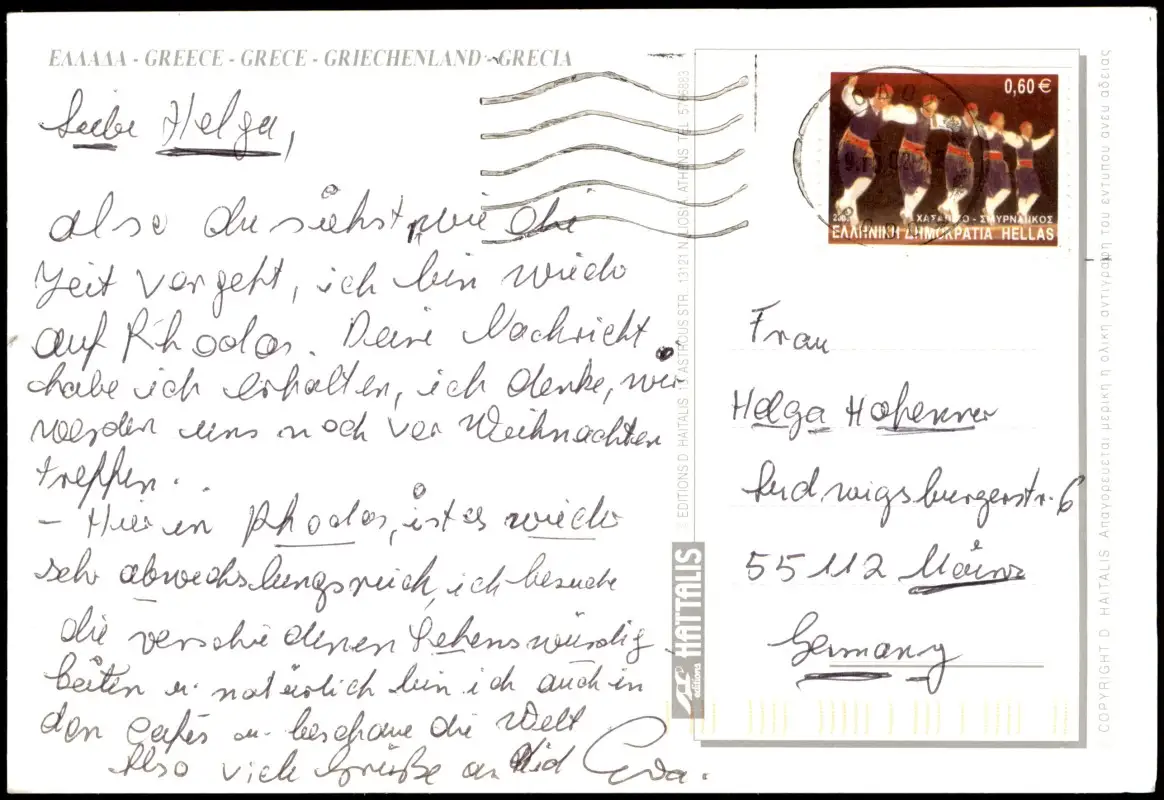 ΕΛΛΑΔΑ - GREECE - GRECE - GRIECHENLAND - GRECIA
Liebe Helga,
also du siehst, wie die
Zeit vergeht, ich bin wieder
auf Rhodos. Deine Nachricht
habe ich erhalten, ich denke, wir
werden uns noch vor Weihnachten
treffen.
- Hier in Rhodos, ist es wieder
sehr abwechslungsreich, ich besuche
die verschiedenen Sehenswürdig
keiten u. natürlich bin ich auch in
den Cafés u. beschaue die Welt
Also viele Grüße an Dich Eva.
EDITIONS D HAITALIS 13 ASTROUS STR 13121 N ILIOSIA ATHENS TEL
HAITALIS
editions
0,60 €
ΧΑΣΑΠΙΚΟ - ΣΜΥΡΝΑΙΙΚΟΣ
ΕΛΛΗΝΙΚΗ ΔΗΜΟΚΡΑΤΙΑ HELLAS
Frau
Helga
Ludwigsburgerstr. 6
55112 Mainz
Germany
COPYRIGHT D HAITALIS Απαγορευεται μερικη η ολικη αντιγραφη του εντυπου ανευ αδειας